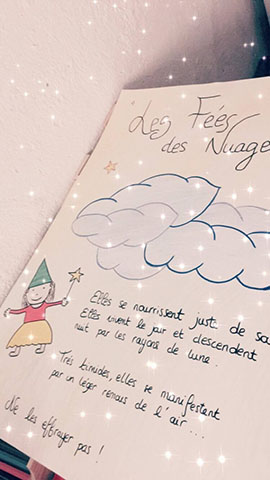 Les Fées
des Nuage
Elles se nourrissent just de
Elles vivent le jour et descendent
nuit par les rayons de lune.
Très timides, elles se manifestent
par un léger remous de l'air...
Ne les effrayer pas !